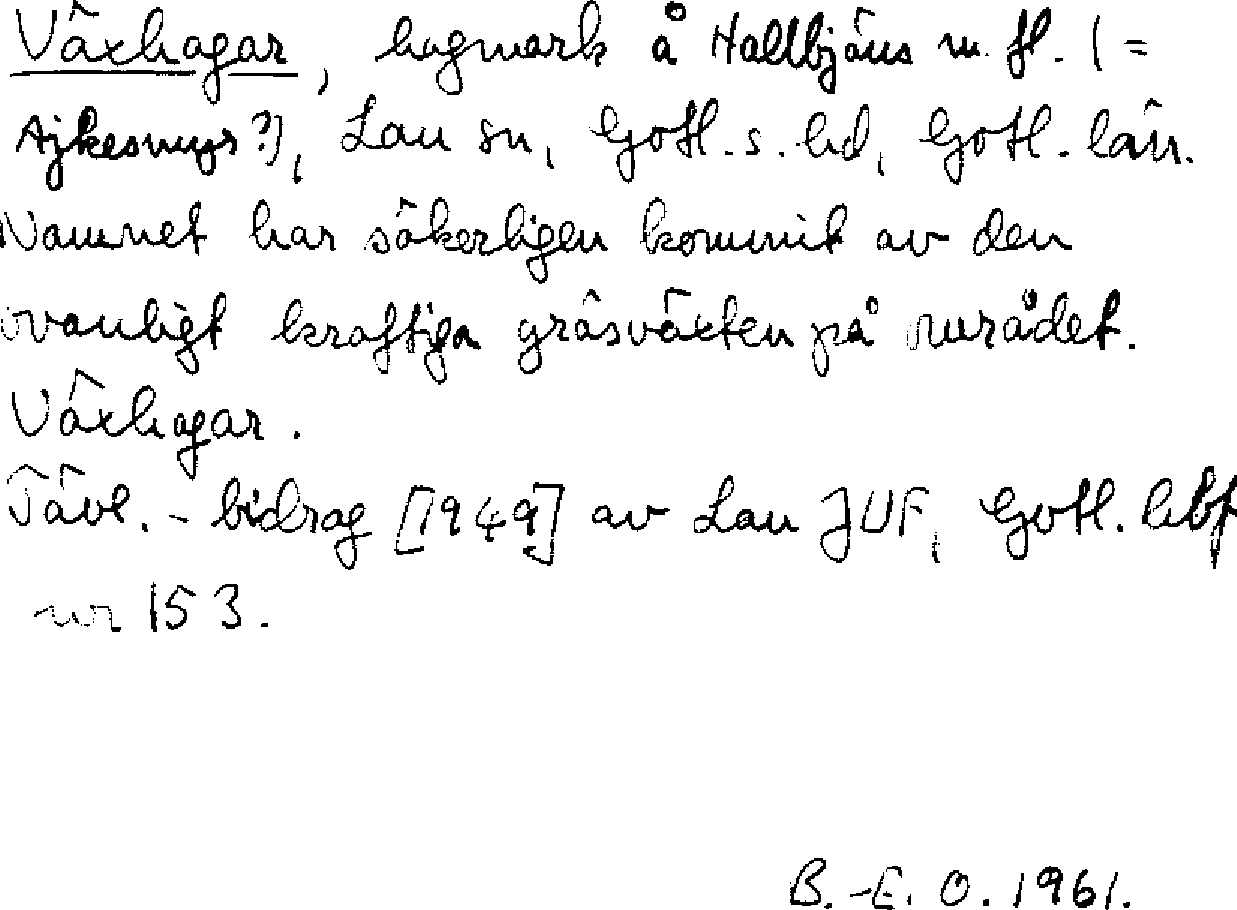 Växhagar, hagmark å Hallbjäns m. fl. (=
Ajkesmyr?), Lau sn, Gotl. s. hd, Gotl. län.
Namnet har säkerligen kommit av den
ovanligt kraftiga gräsväxten på området.
Växhagar.
Tävl.-bidrag [1949] av Lau JUF, Gotl. hbf
nr 153.
B.-E. O. 1961.